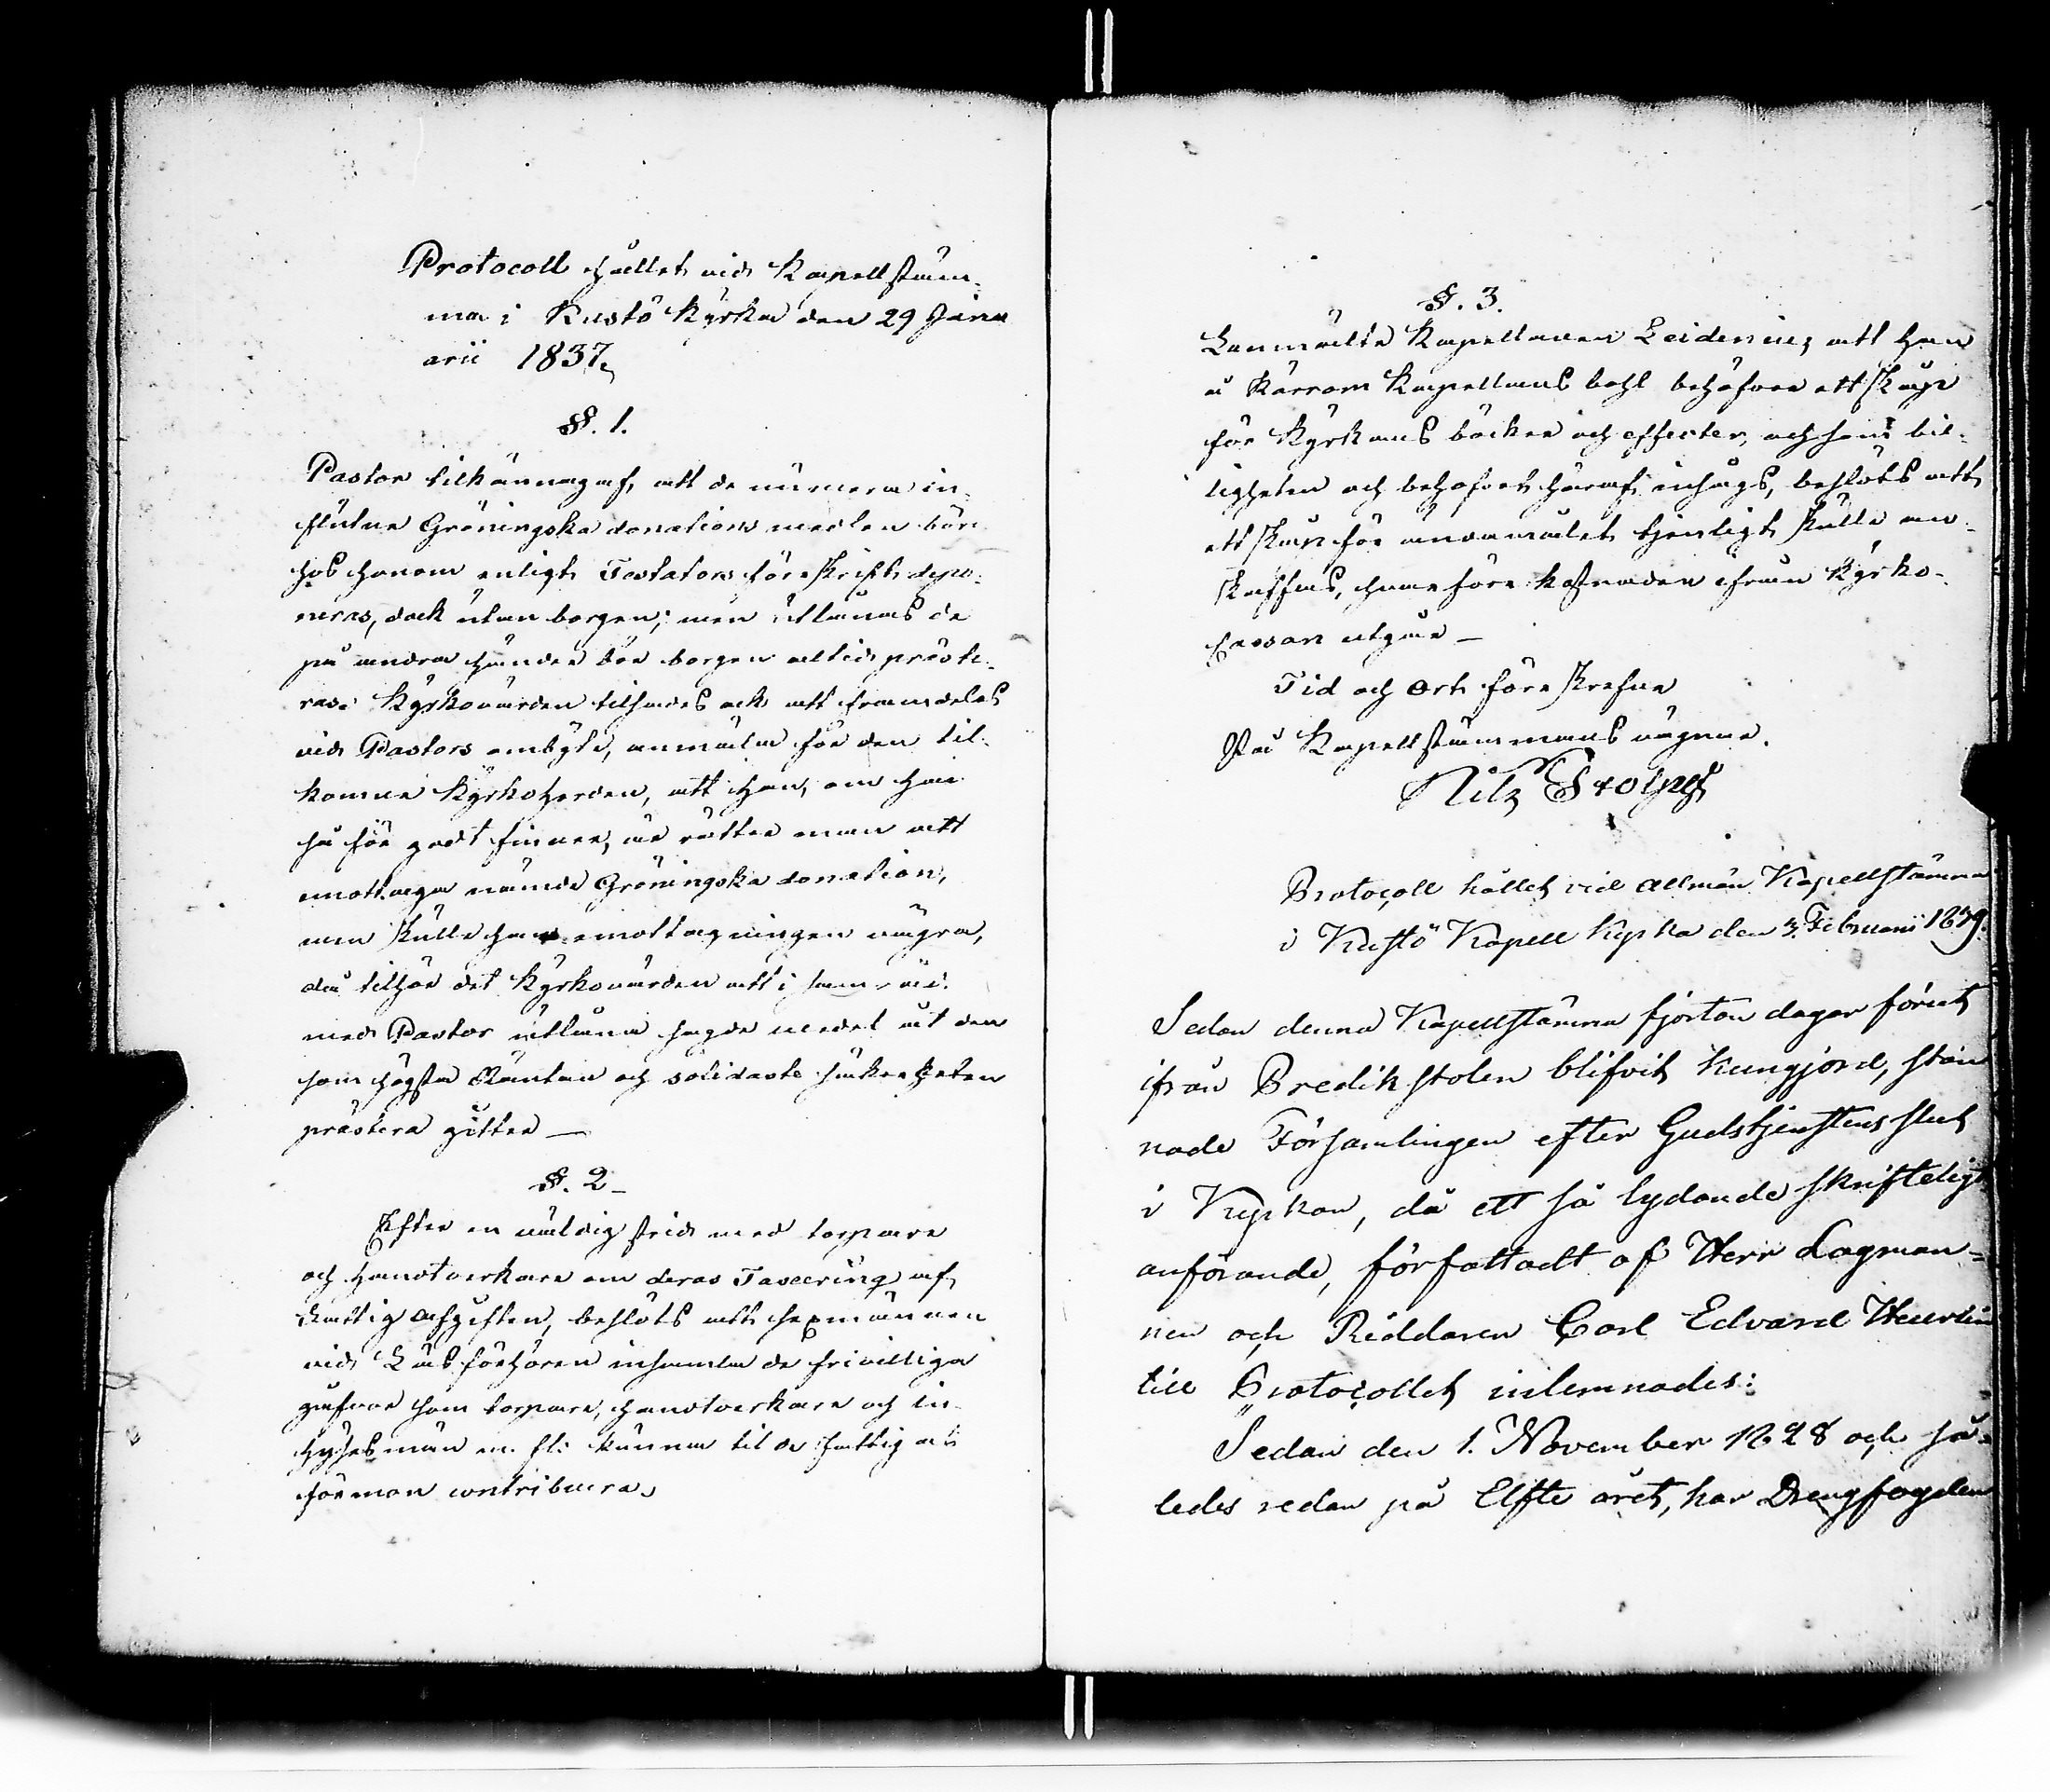 Protocoll hållet vid Kapellstäm-
ma i Kustö Kyrka den 29 Janu
arii 1837.
§. 1.
Pastor tilkännagaf, att de numera in-
flutne Gröningska donations medlen bör
hos honom enligt Testators föreskrift depo-
neras, dock utan borgen; men utlånas de
på andra händer bör borgen altid preste-
ras. Kyrkovärden tilhades ock att framdeles
vid Pastors ombyte, anmäla för den til-
komne Kyrkoherden, att han, om han
så för godt finner, är rätter man att
emottaga nämde Gröningska donation,
men skulle han emottagningen vägra,
då tilhör det Kyrkovärden att i samråd
med Pastor utlåna sagde medel åt den
som högsta Räntan och solidaste säkerheten
præstera gitter —
§. 2 -
Efter en väldig strid med torpare
och handtverkare om deras Taxering af
Fattig afgiften, beslöts att sexmännen
vid Läsförhören insamla de frivilliga
gåfvor som torpare, handtverkare och in-
hyses män m. fl. kunna til de fattigas
förmon contribuera.
§. 3.
Anmälte Kapellanen Leidenius att han
å Kärrom Kapellans bohl behöfver ett skåp
för Kyrkans böcker och effecter, och som bil-
ligheten och behofvet häraf insågs, beslöts att
ett skåp för ändamålet tjenligt skulle an-
skaffas, hvarföre kostnaden ifrån Kyrko-
Cassan utgår —
Tid och Ort föreskrefne
På Kapellstämmans vägnar.
Nils
Protocoll hållet vid allmän Kapellstämma
i Kustö Kapell Kyrka den 3. Februarii 1839.
Sedan denna Kapellstämma fjorton dagar förut
ifrån Predikstolen blifvit kungjord, stan
nade Församlingen efter Gudstjenstens slut
i Kyrkan, då ett så lydande skrifteligt
anförande, författadt af Herr Lagman-
nen och Riddaren Carl Edvard Heurlin
till Protocollet inlemnades:
"Sedan den 1. November 1828 och så-
ledes redan på Elfte året, har Drengfogden